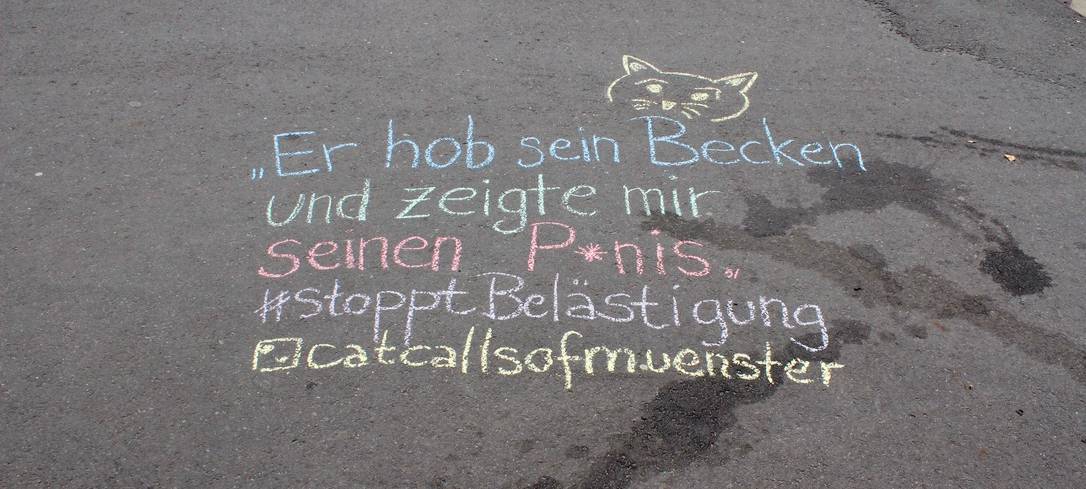 „Er hob sein Becken
und zeigte mir
seinen P*nis.“
#stopptBelästigung
catcallsofmuenster